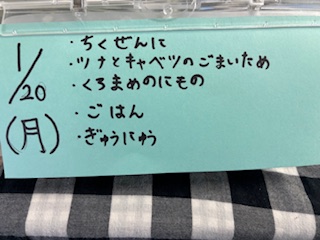 1/20
(月)
・ちくぜんに
・ツナとキャベツのごまいため
・くろまめのにもの
・ごはん
・ぎゅうにゅう